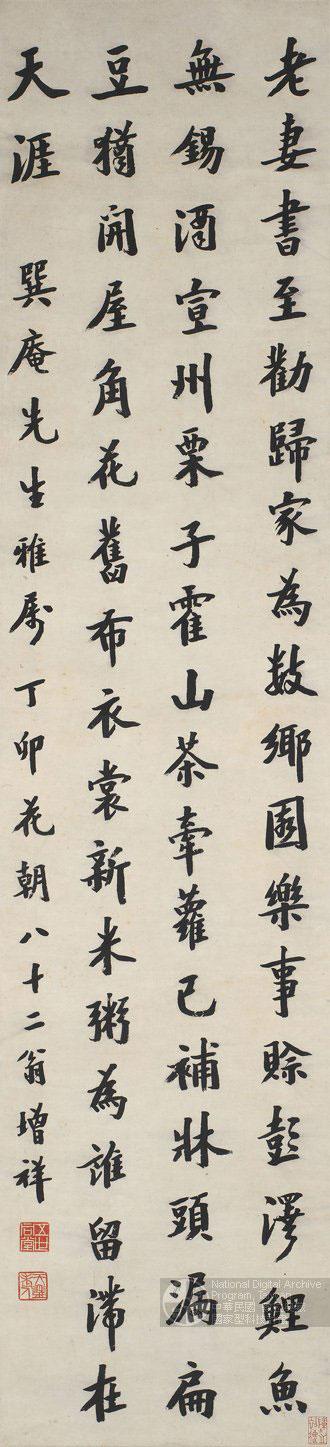 老妻書至勸歸家為數鄉園樂事賒彭澤鯉魚
無錫酒宣州栗子霍山茶牽蘿已補牀頭漏扁
豆猶開屋角花舊布衣裳新米粥為誰留滯在
天涯 巽庵先生雅屬 丁卯花朝八十二翁增祥
五世同堂
National Digital Archive
Program,
中華民國
國家型科技